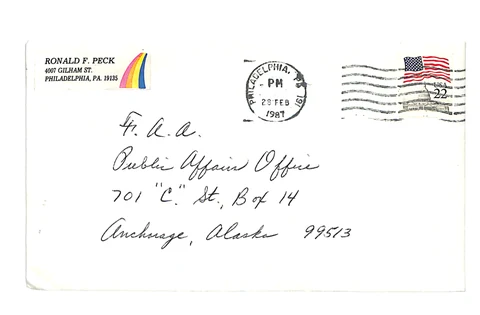 RONALD F. PECK
4007 GILHAM ST.
PHILADELPHIA, PA. 19135
PHILADELPHIA, PA 191
PM
28 FEB
1987
USA
22
F. A. A.
Public Affairs Office
701 "C." St., Box 14
Anchorage, Alaska 99513